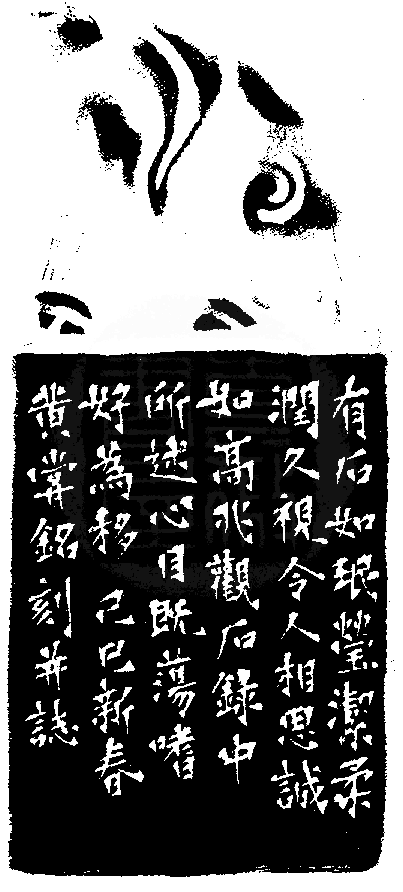 有石如珉瑩潔柔
潤久視令人相思誠
如高兆觀石錄中
所述心目既蕩嗜
好為移己巳新春
黃嘗銘刻并誌